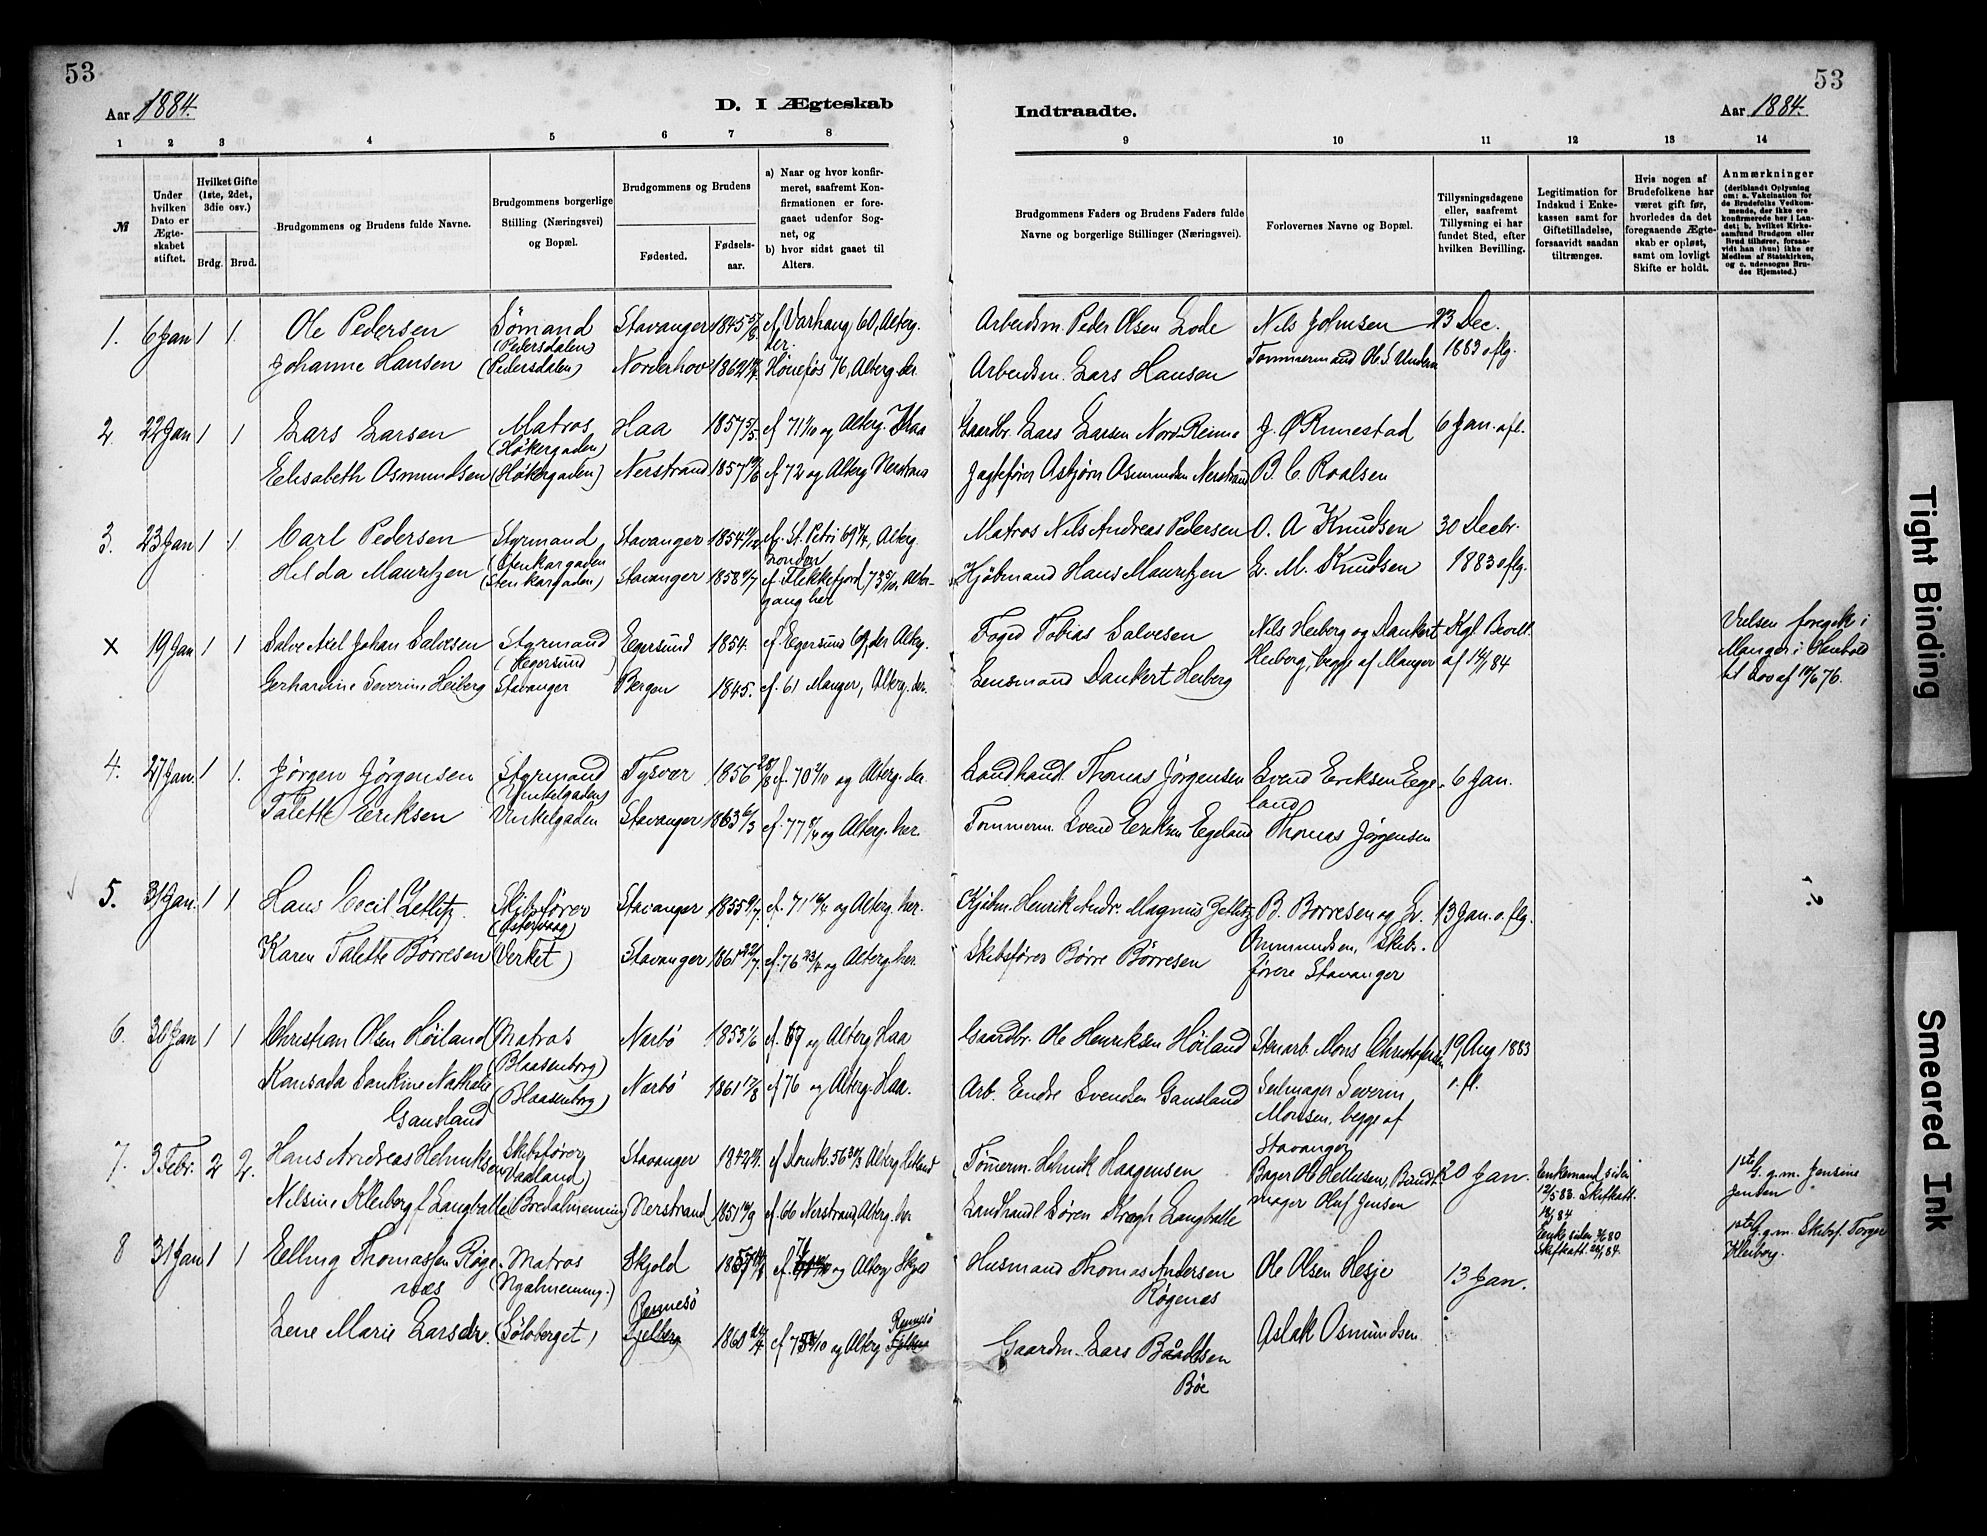 53
53
Aar 1884.
D. I Ægteskab
Indtraadte.
Aar 1884.
1 2 3 4 5 6 7 8 9 10 11 12 13 14
№
Under hvilken Dato er Ægteskabet stiftet.
Hvilket Gifte (1ste, 2det, 3die osv.)
Brdg. Brud.
Brudgommens og Brudens fulde Navne.
Brudgommens borgerlige Stilling (Næringsvei) og Bopæl.
Brudgommens og Brudens
Fødested.
Fødselsaar.
a) Naar og hvor konfirmeret, saafremt Konfirmationen er foregaaet udenfor Sognet, og
b) hvor sidst gaaet til Alters.
Brudgommens Faders og Brudens Faders fulde Navne og borgerlige Stillinger (Næringsvei).
Forlovernes Navne og Bopæl.
Tillysningsdagene eller, saafremt Tillysning ei har fundet Sted, efter hvilken Bevilling.
Legitimation for Indskud i Enkekassen samt for Giftetilladelse, forsaavidt saadan tiltrænges.
Hvis nogen af Brudefolkene har været gift før, hvorledes da det foregaaende Ægteskab er opløst, samt om lovligt Skifte er holdt.
Anmærkninger
(deriblandt Oplysning om: a. Vakcination for de Brudefolks Vedkommende, der ikke ere konfirmerede her i Landet; b. hvilket Kirkesamfund Brudgom eller Brud tilhører, forsaavidt han (hun) ikke er Medlem af Statskirken, og c. udensogns Brudes Hjemsted.)
1. 6 Jan 1 1. Ole Pedersen Sømand (Pedersdalen) Stavanger 1845 cf Varhaug 60, Alterg. der. Arbeidsm. Peder Olsen Lode Nils Johnsen 23 Dec. 1883 o flg.
Johanne Hansen (Pedersdalen) Norderhov 1862 Hønefos 76, Alterg. der. Arbeidsm. Lars Hansen Tømmermand Ole S
2. 22 Jan 1 1 Lars Larsen Matros (Høkergaden) Haa 1857 5/5 cf 71 1/10 og Alterg. Haa Gaardbr. Lars Larsen Nord-Reime J. Ø Runestad 6 Jan. o fl.
Elisabeth Osmundsen (Høkergaden) Nerstrand 1857 cf 72 og Alterg Nerstrand Jagtefører Asbjørn Osmundsen Nerstrand B. C. Roalsen
3. 23 Jan 1 1. Carl Pedersen Styrmand (Stenkargaden Stavanger 1854 cf. St. Petri 69, Alterg. London Matros Nils Andreas Pedersen O. A Knudsen 30 Decbr. 1883 o flg.
Hilda Mauritzen (Stenkargaden) Stavanger 1858 cf Flekkefjord 73, Altergang her Kjøbmand Hans Mauritzen L. M. Knudsen
x 19 Jan 1 1 Salve Axel Johan Salvesen Styrmand (Egersund) Egersund 1854. cf Egersund 69, der Alterg. Foged Tobias Salvesen Nils Heiberg og Dankert Heiberg, begge af Manger Kgl. Bevill. af 14/1 84 Vielsen foregik i Manger i Henhold til Lov af 14/6 76.
Gerhardine Severine Heiberg Stavanger Bergen 1845. cf. 61 Manger, Alterg. der. Lensmand Dankert Heiberg
4. 27 Jan. 1 1. Jørgen Jørgensen Styrmand (Vinkelgaden) Tysvær 1856 28/8 cf. 70 2/10 og Alterg. der Landhandl. Thomas Jørgensen Svend Eriksen Egeland 6 Jan.
Talette Eriksen Vinkelgaden Stavanger 1863 6/3 cf. 77 8/4 og Alterg. her. Tømmerm. Svend Eriksen Egeland Thomas Jørgensen
5. 31 Jan. 1 1. Hans Cecil Zetlitz Skibsfører (Østervaag) Stavanger 1855 cf. 71 16/4 og Alterg. her. Kjøbm. Henrik Andr. Magnus Zetlitz B. Børresen og L. Ommundsen, Skibsførere Stavanger 13 Jan. o. flg. ?
Karen Talette Børresen (Verket) Stavanger 1861 22/7 cf. 76 23/4 og Alterg her. Skibsfører Børre Børresen
6. 30 Jan 1 1 Christian Olsen Høiland Matros (Blaasenborg) Nærbø 1853 1/6 cf. 67 og Alterg Haa Gaardbr. Ole Henriksen Høiland Stenarb. Mons Christofersen 19 Aug 1883 o. fl.
Konrada Nathalie Gausland (Blaasenborg) Nærbø 1861 17/8 cf 76 og Alterg. Haa. Arb. Endre Svendsen Gausland Seilmager Severin Monsen, begge af Stavanger
7. 3 Febr. 2 2. Hans Andreas Helmiksen Skibsfører Vaaland) Stavanger 1842 cf Domk. 56 30/3 Alterg Hetland Tømmerm. Helmik Haagensen Bager Ole Hellesen, 20 Jan. Enkemand siden 12/5 83. Skifteatt. 18/1 84 1ste G. g.m. Jensine Jensen
Nilsine Kleiberg f Langballe (Bredalmenning) Nerstrand 1851 14/9 cf. 66 Nerstrand, Alterg. her Landhandl Søren Krogh Langballe Olaf Jensen Enke siden 80 Skifteatt. 84. 1ste G. g.m. Skibsf. Torger Kleiberg.
8 31 Jan 1 1 Elling Thomassen Røgenæs Matros (Nyalmenning.) Skjold 1857 cf. 71 og Alterg Skjold Husmand Thomas Andersen Røgenæs Ole Olsen Hesje 13 Jan.
Lene Marie Larsdr. (Sølvberget) Rennesø 1860 24/4 cf 75 og Alterg Rennesø Gaardm. Lars Baadsen Bøe Aslak Osmundsen.
Tight Binding
Smeared Ink